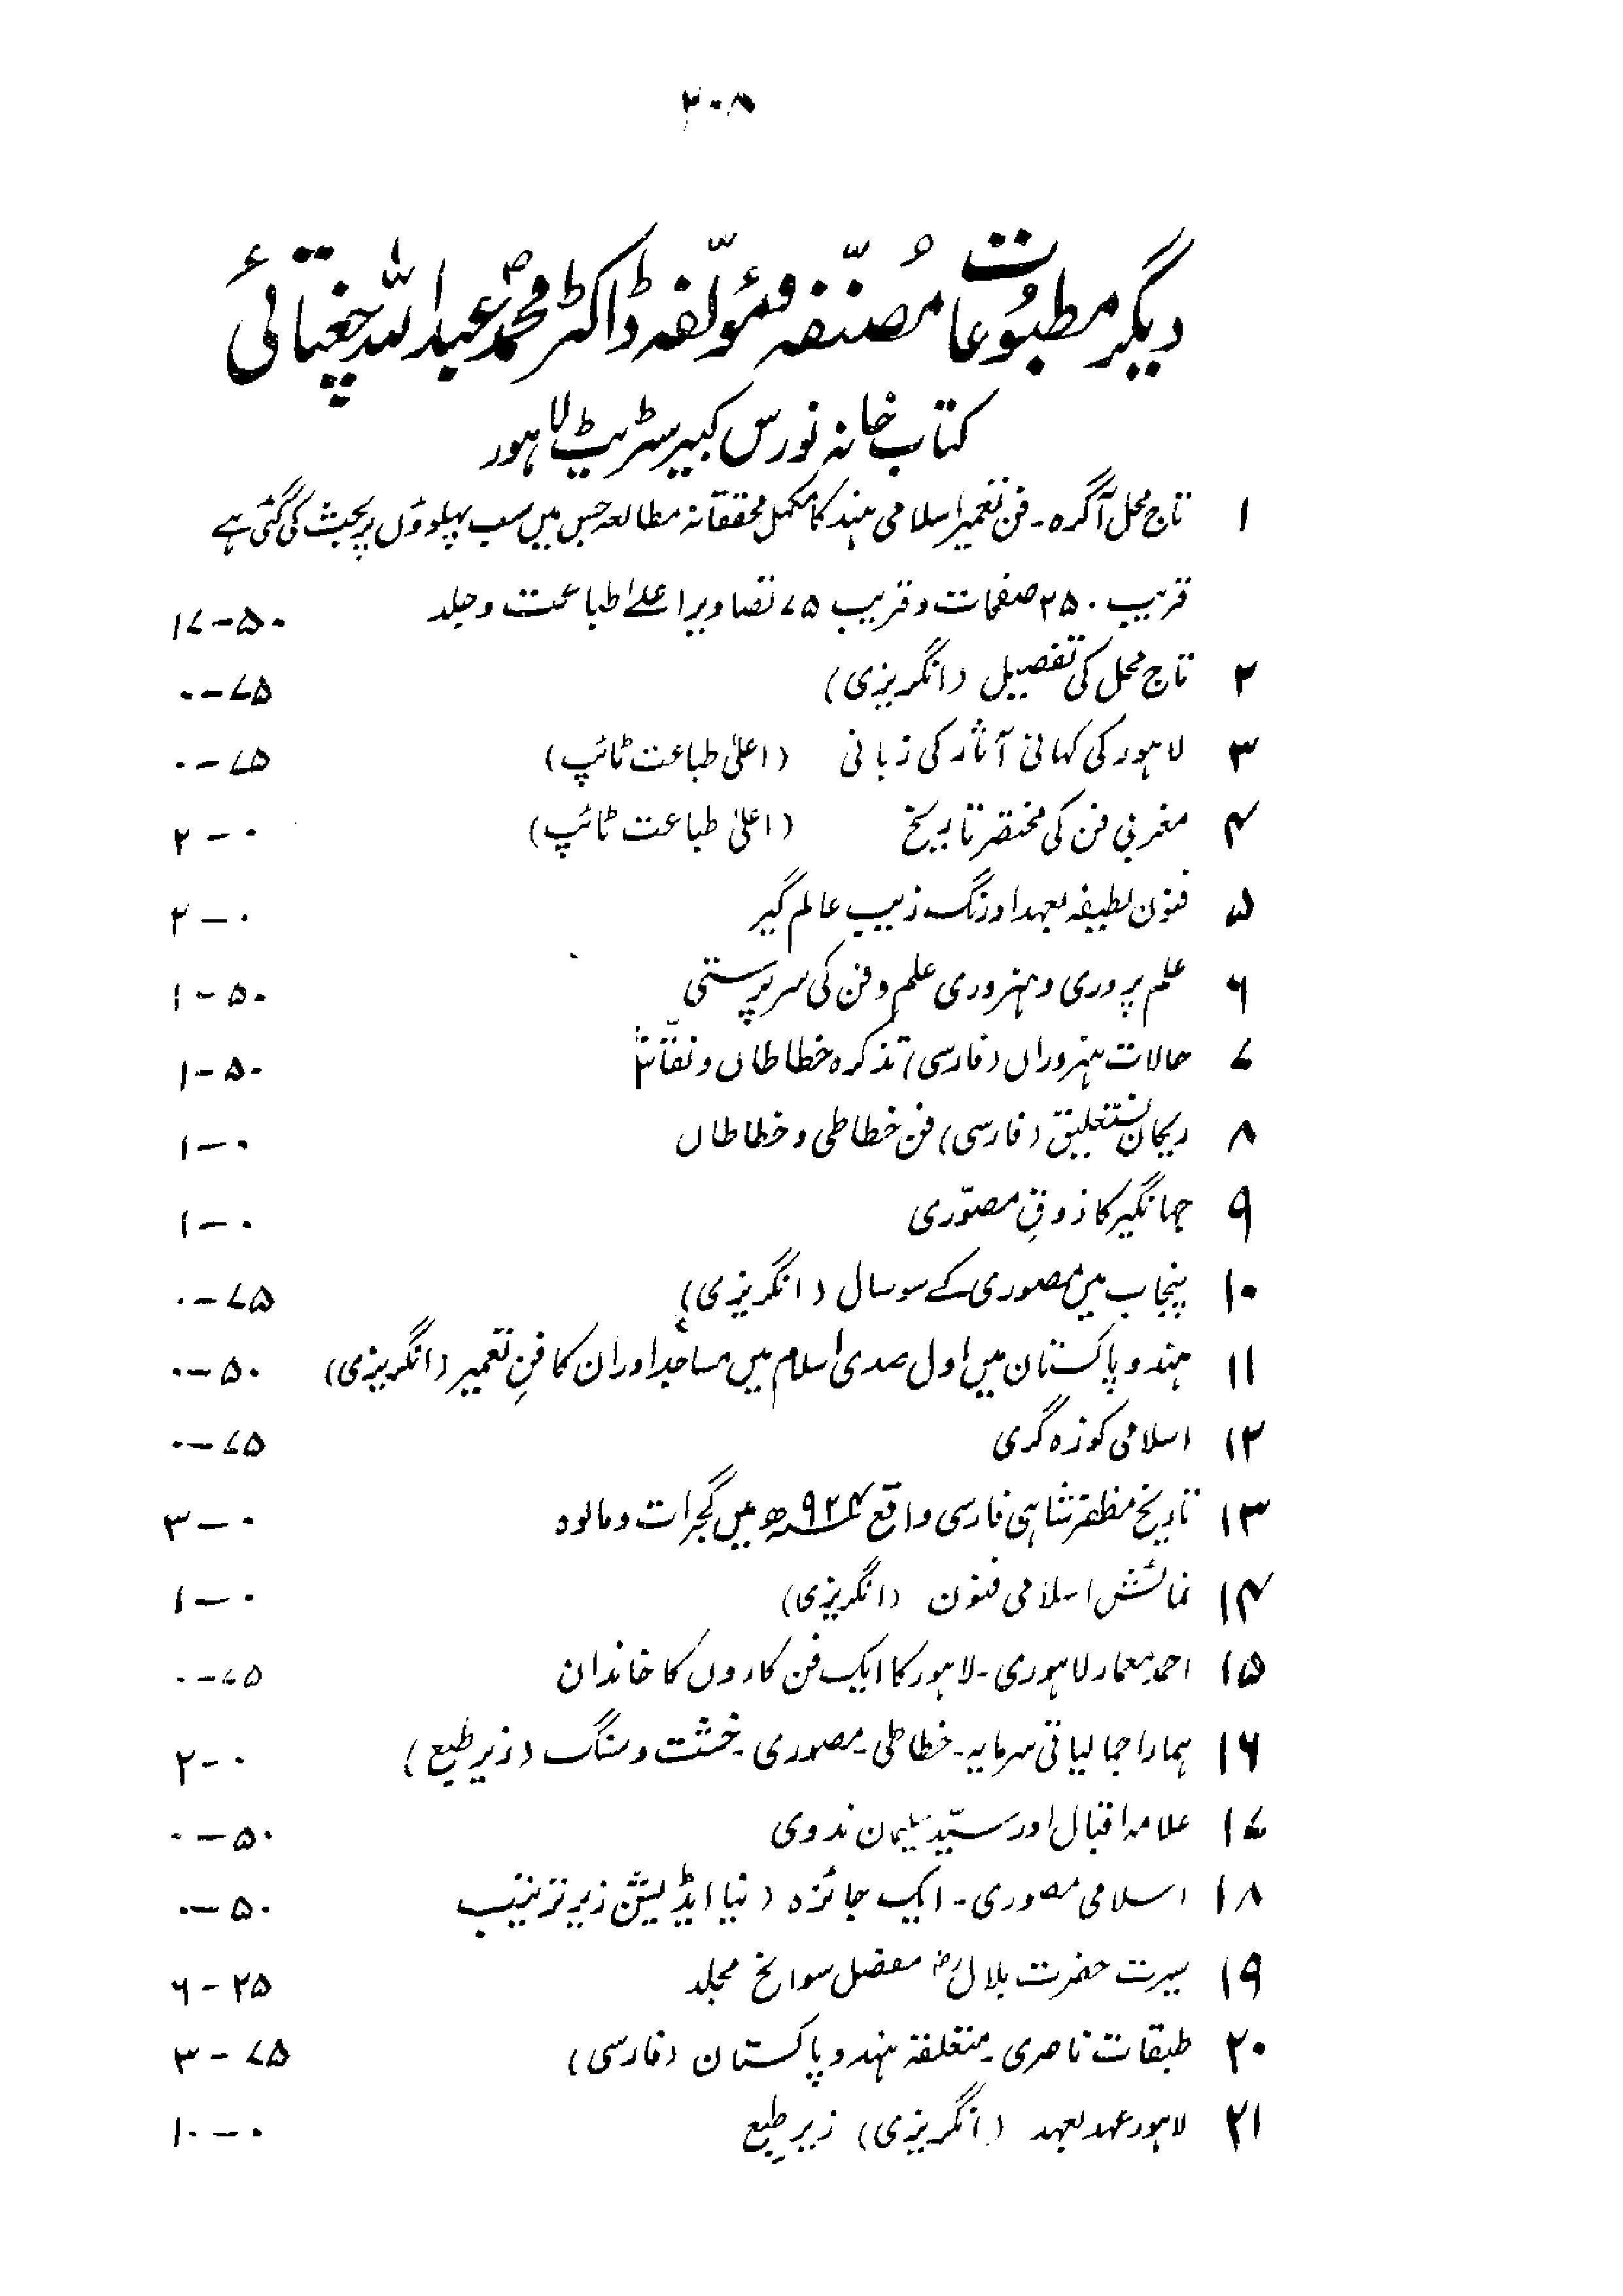 ۲۰۸
دیگر مطبوعات مُصنّفہ و مُؤلّفہ ڈاکٹر محمدؐ عبداللہ چغتائی
کتاب خانہ نورس کبیر سٹریٹ لاہور
۱ تاج محل آگرہ - فن تعمیر اسلامی ہند کا مکمل محققانہ مطالعہ جس میں سب پہلوؤں پر بحث کی گئی ہے
قریب ۲۵۰ صفحات و قریب ۷۵ تصاویر اعلےٰ طباعت و جلد ۱۷-۵۰
۲ تاج محل کی تفصیل (انگریزی) ۰-۷۵
۳ لاہور کی کہانی آثار کی زبانی (اعلیٰ طباعت ٹائپ) ۰-۷۵
۴ مغربی فن کی مختصر تاریخ (اعلیٰ طباعت ٹائپ) ۲-۰
۵ فنون لطیفہ بعہد اورنگ زیب عالم گیر ۲-۰
۶ علم پروری و ہنروری علم و فن کی سرپرستی ۱-۵۰
۷ حالات ہنروراں (فارسی) تذکرہ خطاطاں و نقّاشاں ۱-۵۰
۸ ریحان نستعلیق (فارسی) فن خطاطی و خطاطاں ۱-۰
۹ جہانگیر کا ذوقِ مصوّری ۱-۰
۱۰ پنجاب میں مصوری کے سو سال (انگریزی) ۰-۷۵
۱۱ ہند و پاکستان میں اول صدی اسلام میں مساجد اور ان کا فنِ تعمیر (انگریزی) ۰-۵۰
۱۲ اسلامی کوزہ گری ۰-۷۵
۱۳ تاریخ مظفر شاہی فارسی واقع ۹۲۴ھ میں گجرات و مالوہ ۳-۰
۱۴ نمائش اسلامی فنون (انگریزی) ۱-۰
۱۵ احمد معمار لاہوری - لاہور کا ایک فن کاروں کا خاندان ۰-۷۵
۱۶ ہمارا جمالیاتی سرمایہ - خطاطی - مصوری - خشت و سنگ (زیر طبع) ۲-۰
۱۷ علامہ اقبال اور سیّد سلیمان ندوی ۰-۵۰
۱۸ اسلامی مصوری - ایک جائزہ (نیا ایڈیشن زیر ترتیب ۰-۵۰
۱۹ سیرت حضرت بلالؓ مفصل سوانح مجلد ۶-۲۵
۲۰ طبقات ناصری - متعلقہ ہند و پاکستان (فارسی) ۳-۷۵
۲۱ لاہور عہد بعہد (انگریزی) زیر طبع ۱۰-۰